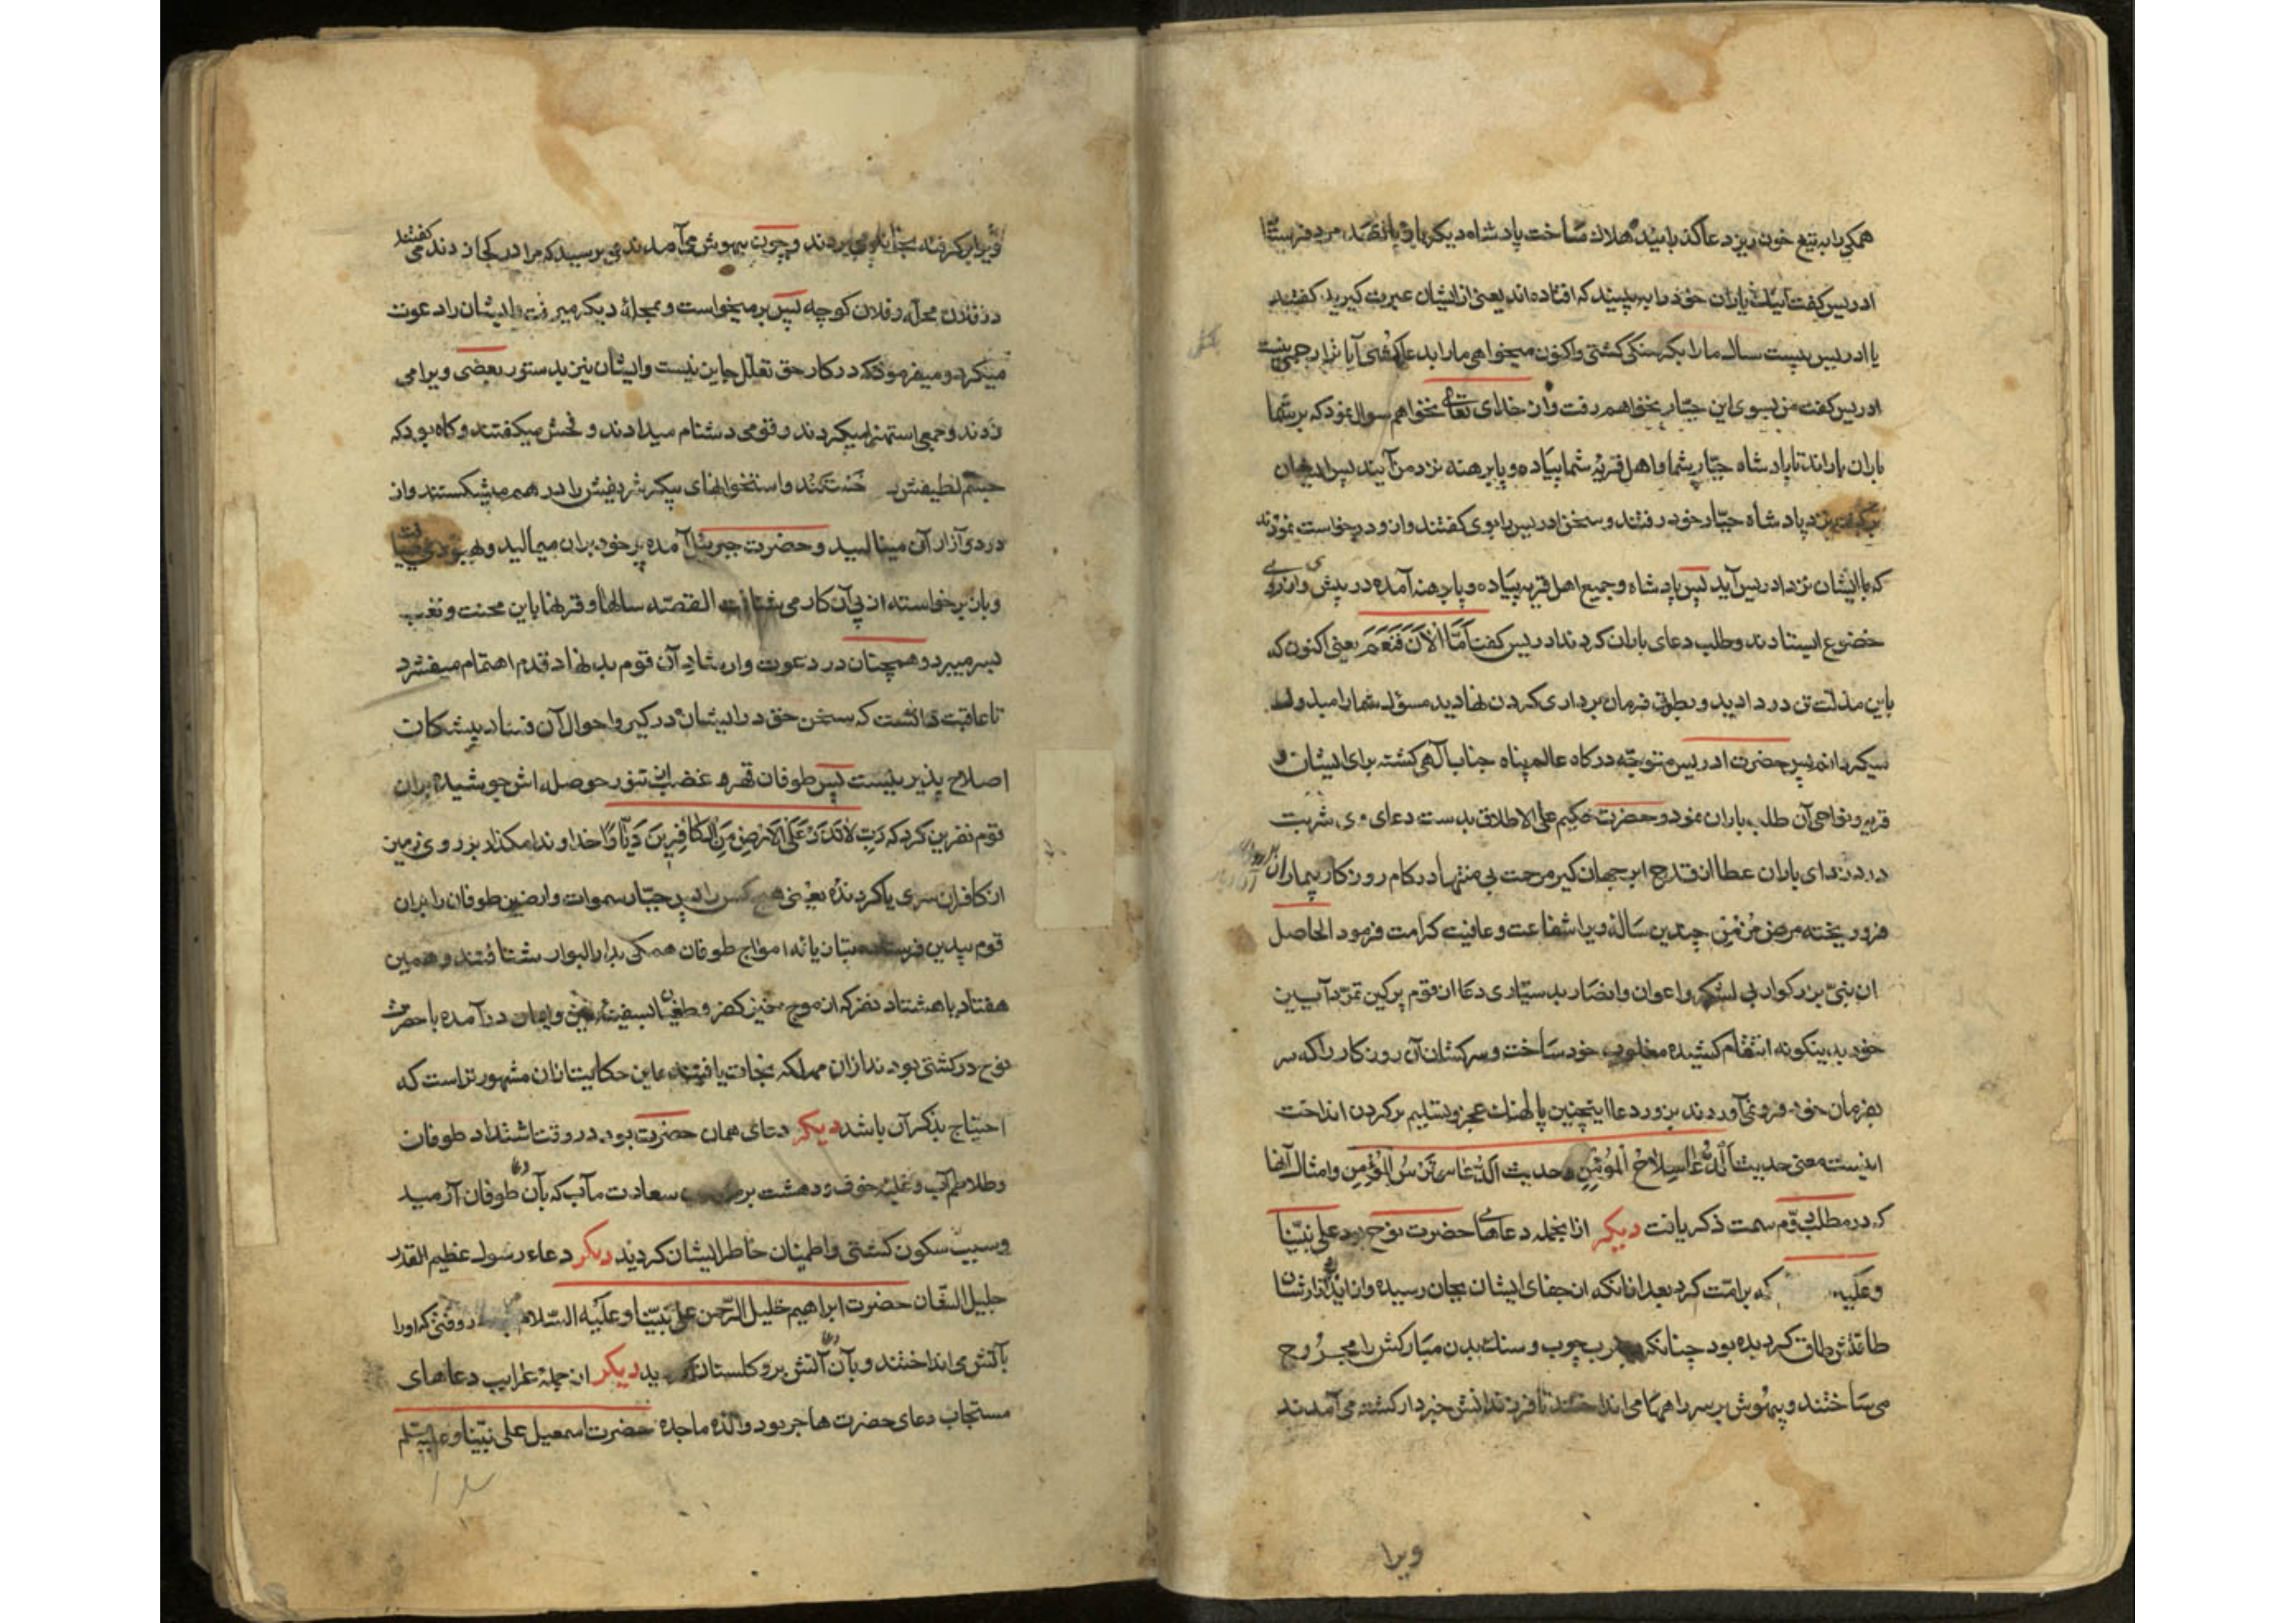 همکی را به تیغ خون ریز دعا گذرانید هلاک ساخت پادشاه دیکر بار پانصد مرد فرستاد
ادریس کفت اینک یاران خود را ببینید که افتاده اند یعنی از ایشان عبرت کیرید کفتند
یا ادریس بیست سال ما را بکرسنکی کشتی واکنون میخواهی ما را بدعا کشی آیا ترا رحمی نیست
ادریس کفت من بسوی این جبار نخواهم رفت و از خدای تعالی نخواهم سوال نمود که بر شما
باران باراند تا پادشاه جبار شما و اهل قریه شما پیاده و پا برهنه نزد من آیند پس ایشان
نزد پادشاه جبار خود رفتند و سخن ادریس با وی کفتند و از و درخواست نمودند
که با ایشان نزد ادریس آید پس پادشاه و جمیع اهل قریه پیاده و پا برهنه آمده در پیش وی از روی
خضوع ایستادند و طلب دعای باران کردند ادریس کفت اَمَّا الْاٰنَ فَنَعَمْ یعنی اکنون که
باین مذلت تن در دادید و بطوق فرمان برداری کردن نهادید مسؤل شما را مبذول
میکردانم پس حضرت ادریس متوجه درکاه عالم پناه جناب آلهی کشته برای ایشان و
قریه و نواحی آن طلب باران نمود و حضرت حکیم علی الاطلاق بدست دعای وی شربت
باران عطا از قدح ابر جهان کیر مرحمت بی منتها در کام روزکار بیماران
فرو ریخته مرض مُزمن چندین ساله ویرا شفاعت و عافیت کرامت فرمود الحاصل
ان نبیّ بزرکوار بی لشکر و اعوان و انصار بدستیاری دعا از قوم پر کین تمرد آیین
خود بدینکونه انتقام کشیده مغلوب خود ساخت و سرکشان آن روزکار را که سر
بفرمان خود فرو نمی آوردند بزور دعا اینچنین پالهنک عجز و تسلیم بر کردن انداخت
اینست معنی حدیث اَلدُّعَاءُ سِلَاحُ الْمُؤْمِنِ و حدیث الدّعاء تُرْسُ الْمُؤْمِنِ و امثال آنها
که در مطلب دوم سمت ذکر یافت دیکر از انجمله دعاهای حضرت نوح بود علی نبیّنا
وعلیه که بر امّت کرد بعد از انکه از جفای ایشان بجان رسیده و از ایذا و ازار ایشان
طاقتش طاق کردیده بود چنانکه بضرب چوب و سنک بدن مبارکش را مجروح
می ساختند و بیهوش بر سر راهها می انداختند تا فرزندانش خبردار کشته می آمدند
ویرا
ویرا بر کرفته بخانه وی بردند و چون بیهوش می آمدند می پرسید که مرا در کجا زدند می کفتند
در فلان محله و فلان کوچه پس بر میخواست و بمحله دیکر میرفت و ایشان را دعوت
میکرد و میفرمود که در کار حق تعلل جایز نیست و ایشان نیز بدستور بعضی ویرا می
زدند و جمعی استهزا میکردند و قومی دشنام میدادند و فحش میکفتند و کاه بود که
جسم لطیفش خستند و استخوانهای پیکر شریفش را در هم میشکستند و از
درد و آزار آن مینالید و حضرت جبرئیل آمده پر خود بر ان میمالید و بهبودی می یافت
و باز برخواسته از پی آن کار می شتافت القصه سالها و قرنها باین محنت و تعب
بسر میبرد و همچنان در دعوت و ارشاد آن قوم بد نهاد قدم اهتمام میفشرد
تا عاقبت دانست که سخن حق در ایشان در کیر و احوال آن فساد پیشکان
اصلاح پذیر نیست پس طوفان قهر و غضب از تنور حوصله اش جوشیده بر ان
قوم نفرین کرد که رَبِّ لَا تَذَرْ عَلَی الْاَرْضِ مِنَ الْکَافِرِینَ دَیَّارًا خداوندا مکذار بر روی زمین
از کافران سری یا کردنده یعنی هیچ کس را پس جبّار سموات و ارضین طوفان را بر ان
قوم بیدین فرستاده بتازیانه امواج طوفان همکی بدار البوار شتافتند و همین
هفتاد یا هشتاد نفر که از موج خیز کفر و طغیان بسفینه و ایمان در آمده با حضرت
نوح در کشتی بودند از ان مهلکه نجات یافتند و این حکایت از ان مشهور تر است که
احتیاج بذکر آن باشد دیکر دعای همان حضرت بود در وقت اشتداد طوفان
و تلاطم آب و غلبه خوف و دهشت بر سعادت مآب که بآن دعا طوفان آرمید
و سبب سکون کشتی و اطمینان خاطر ایشان کردید دیکر دعاء رسول عظیم القدر
جلیل الشّان حضرت ابراهیم خلیل الرّحمن علی نبیّنا وعلیه السّلام در وقتی که او را
بآتش می انداختند و بآن دعا آتش بر و کلستان کردید دیکر از جمله غرایب دعاهای
مستجاب دعای حضرت هاجر بود والده ماجده حضرت اسمعیل علی نبیّنا و علیه سلم